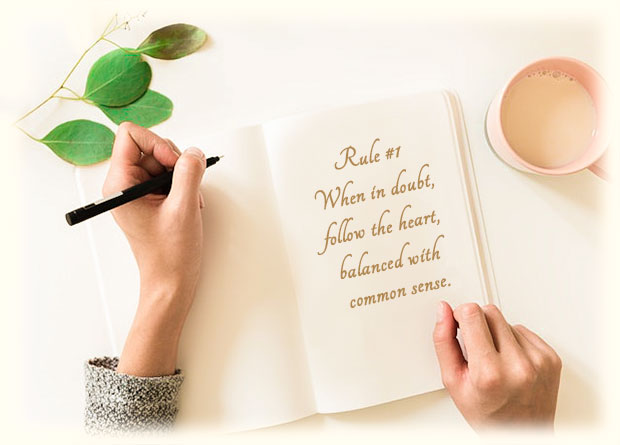 Rule #1
When in doubt,
follow the heart,
balanced with
common sense.